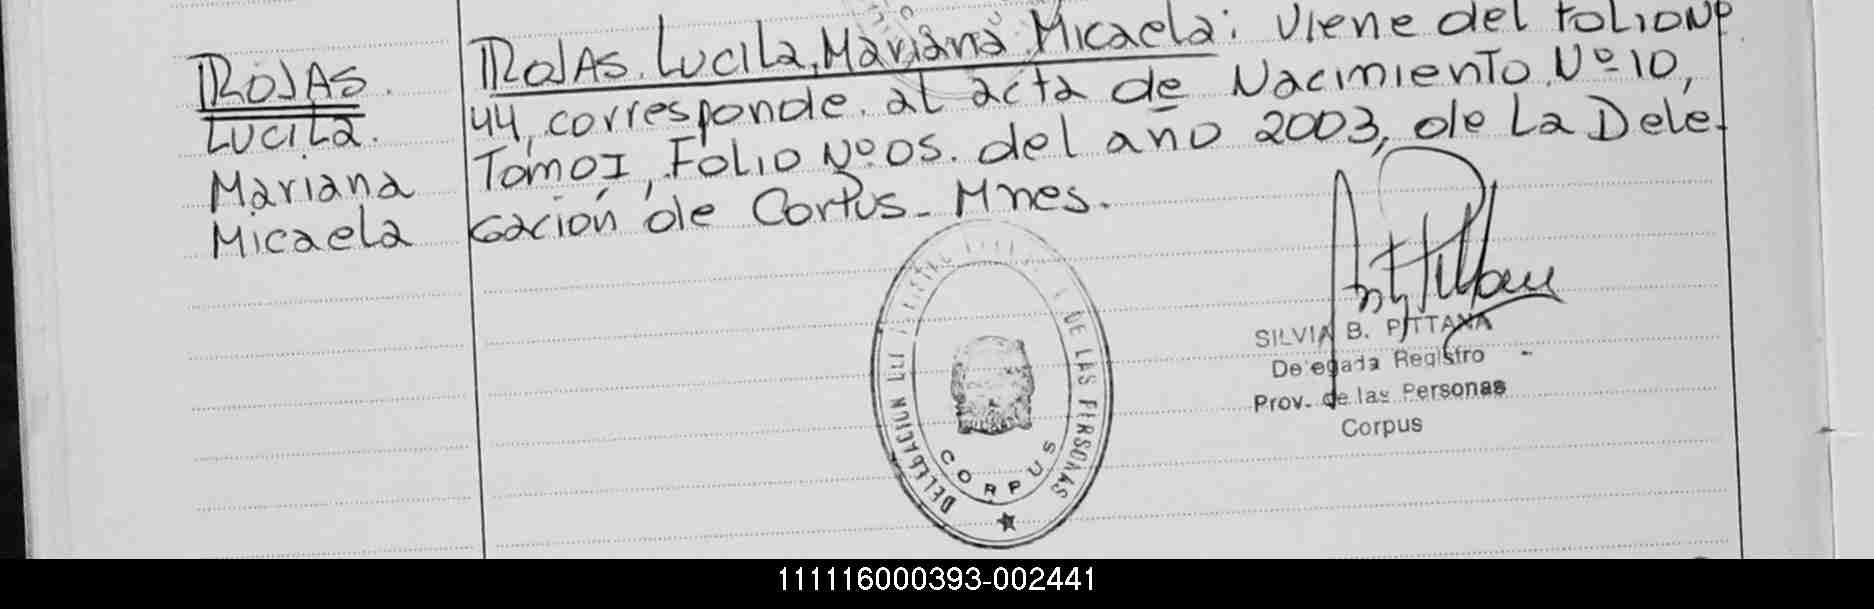 ROJAS.
Lucila.
Mariana
Micaela
ROJAS. Lucila, Mariana Micaela: Viene del FolioNº
44, corresponde. al acta de Nacimiento Nº 10,
Tomo I, Folio Nº 05. del año 2003, de La Dele-
gación de Corpus - Mnes.
DE LAS PERSONAS
CORPUS
SILVIA B. PITTANA
Delegada Registro
Prov. de las Personas
Corpus
111116000393-002441